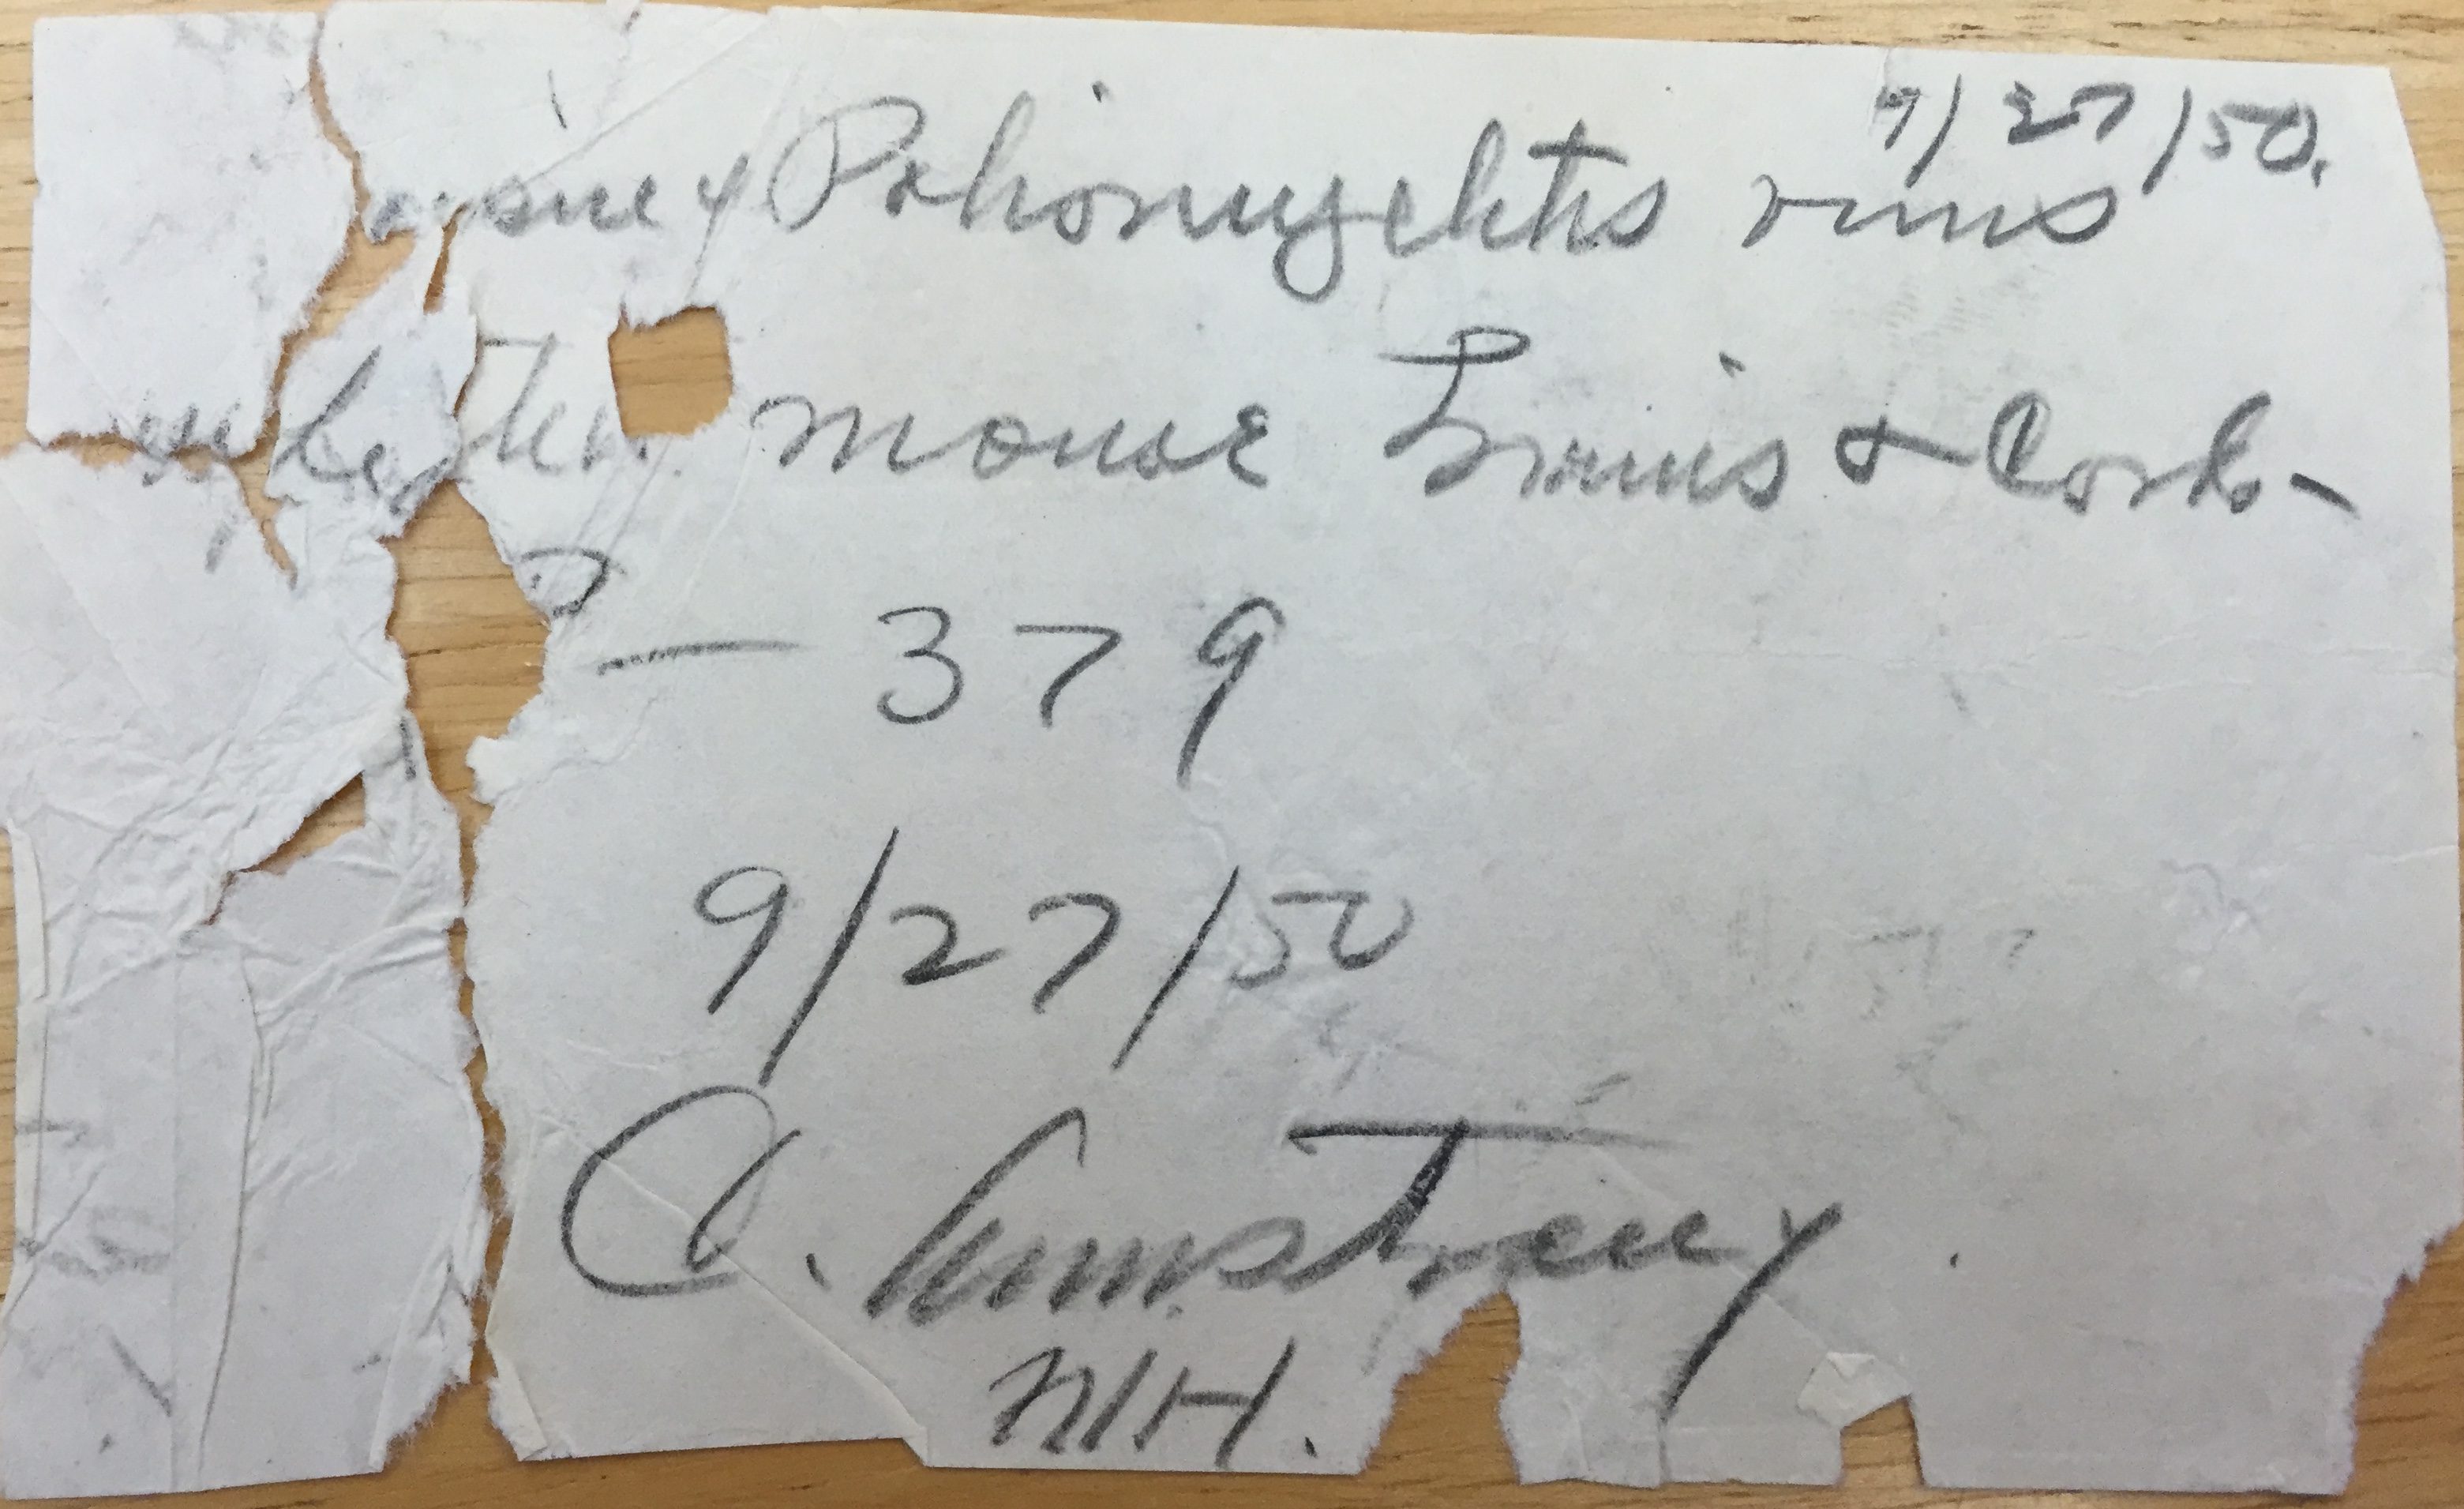 9/27/50.
Poliomyelitis virus
mouse Brains & Cords -
- 379
9/27/50
C. Armstrong.
NIH.